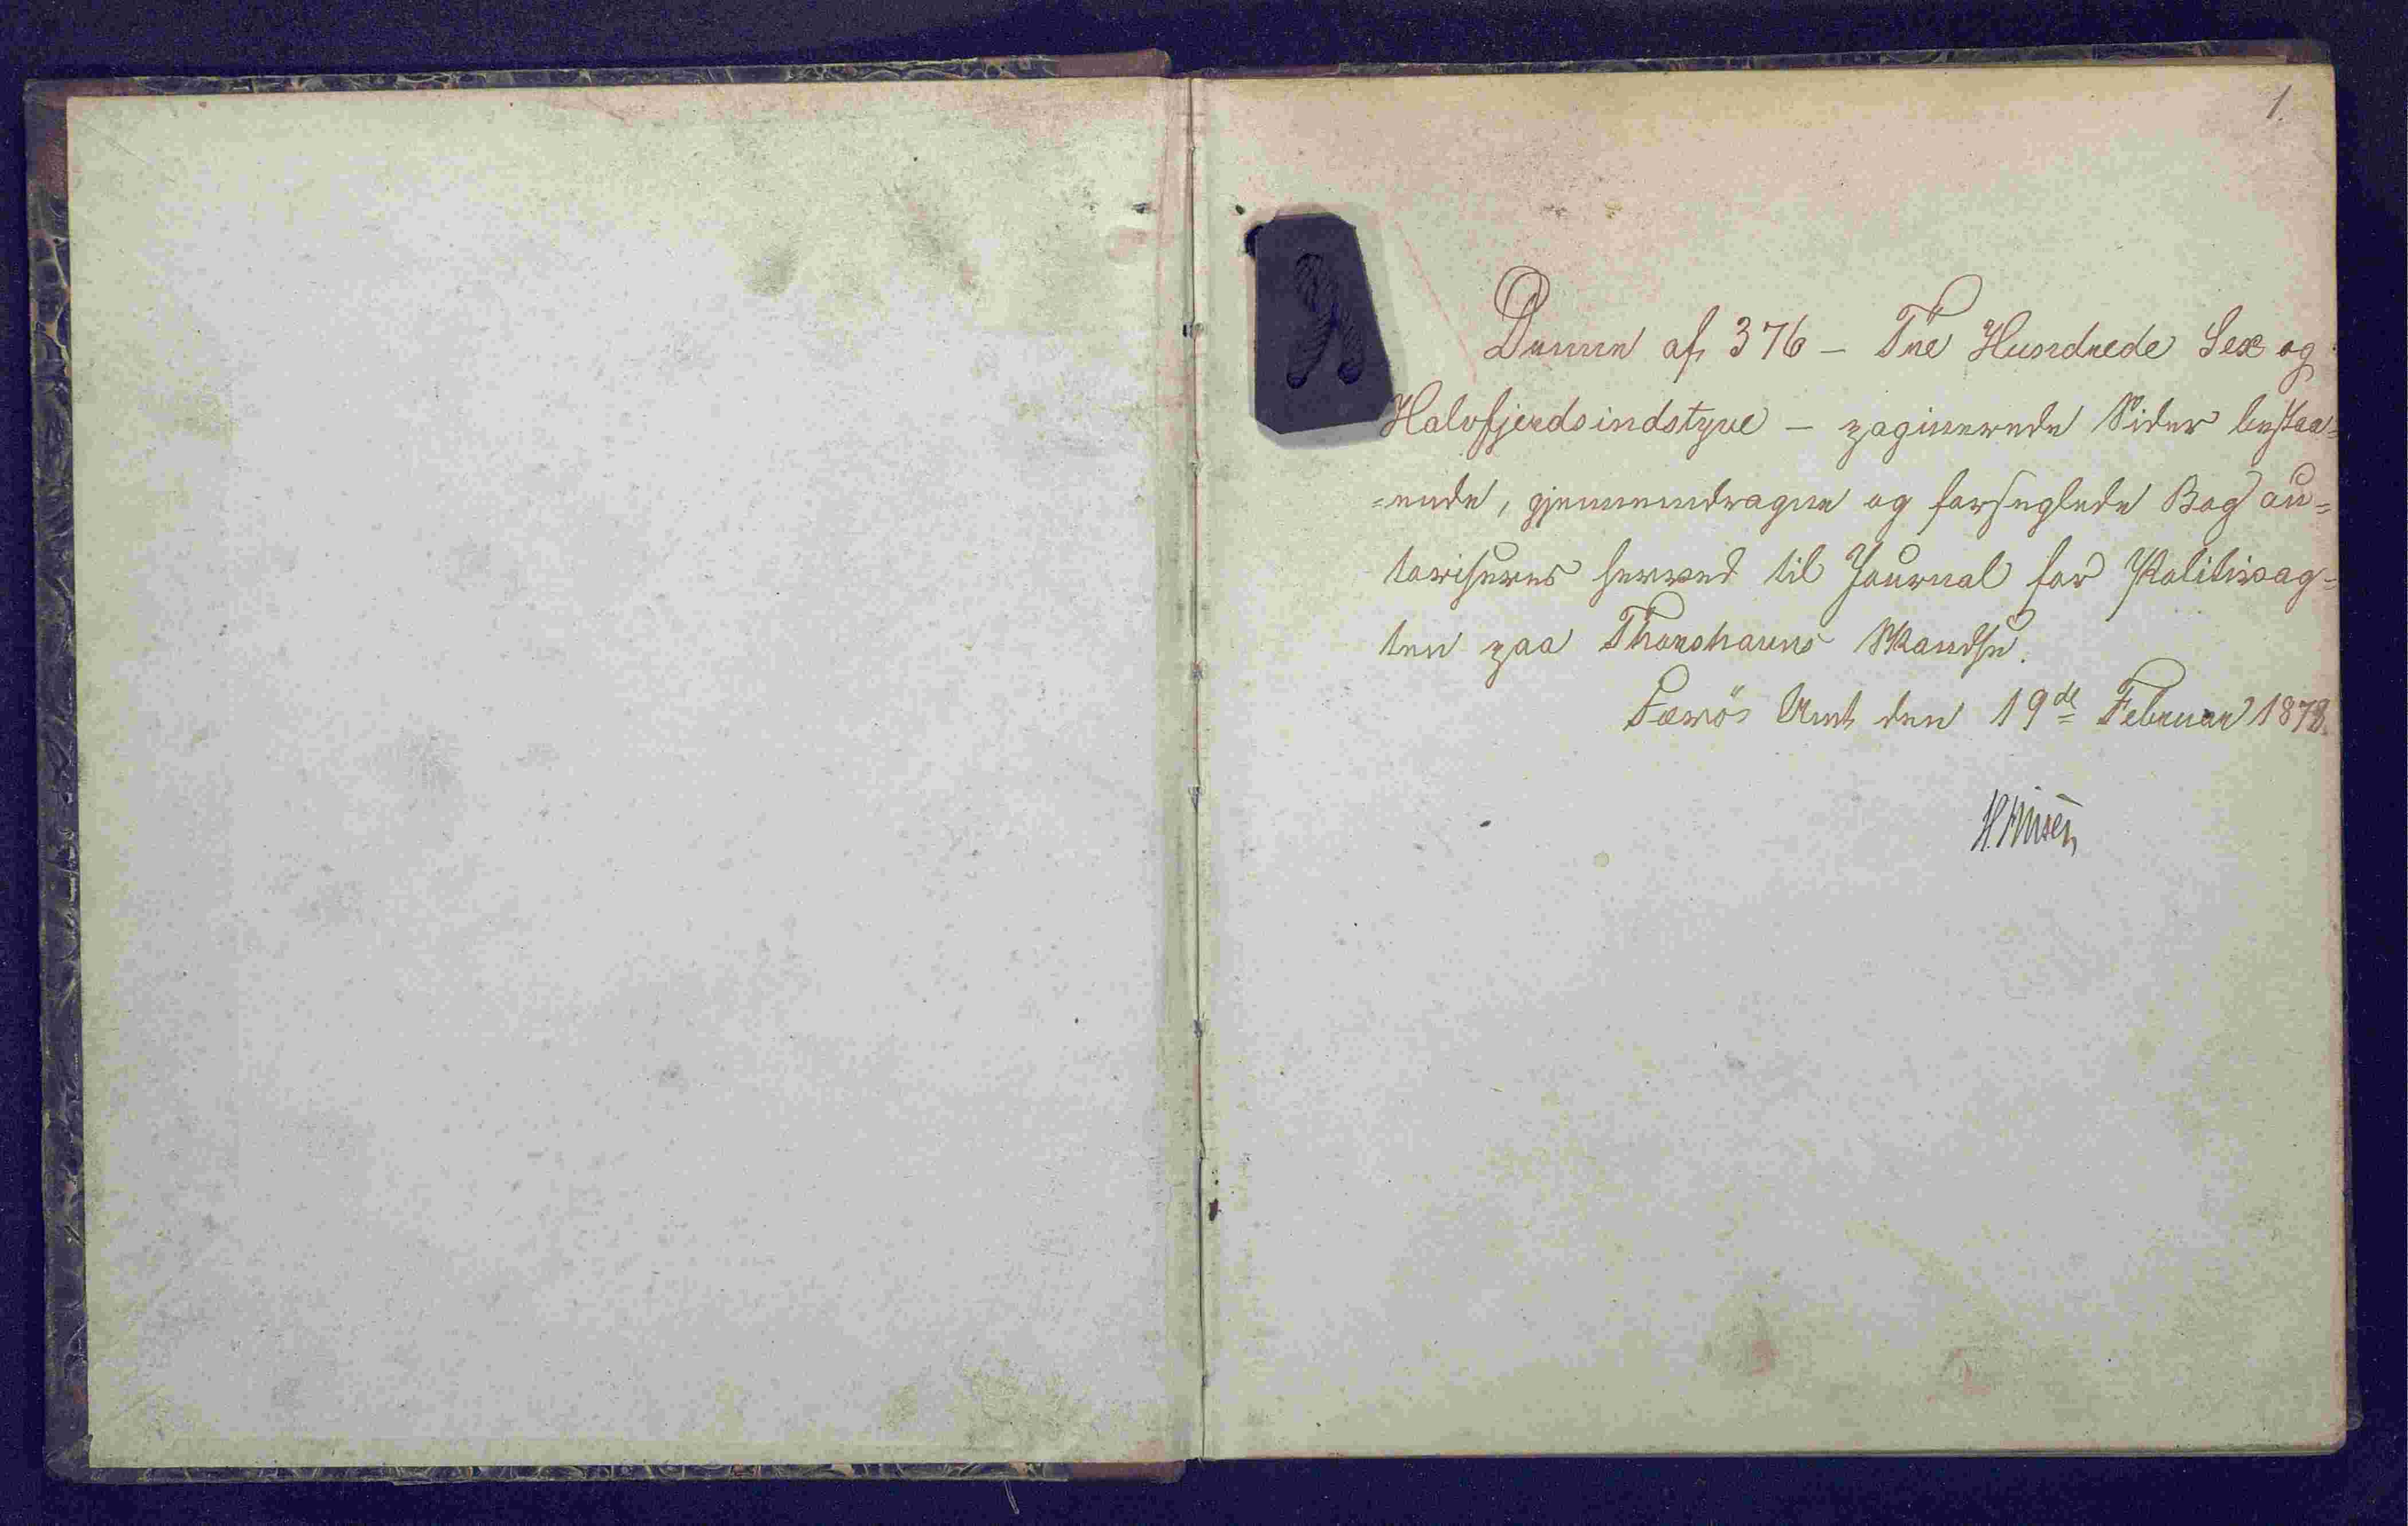 1.
Denne af 376 – Tre Hundrede Sex og
Halvfjerdsindstyve – paginerede Sider bestaa-
=ende, gjennemdragne og forseglede Bog au=
toriseres herved til Journal for Politivag=
ten paa Thorshavns Skandse.
Færös Amt den 19de Februar 1878.
H. Finsen